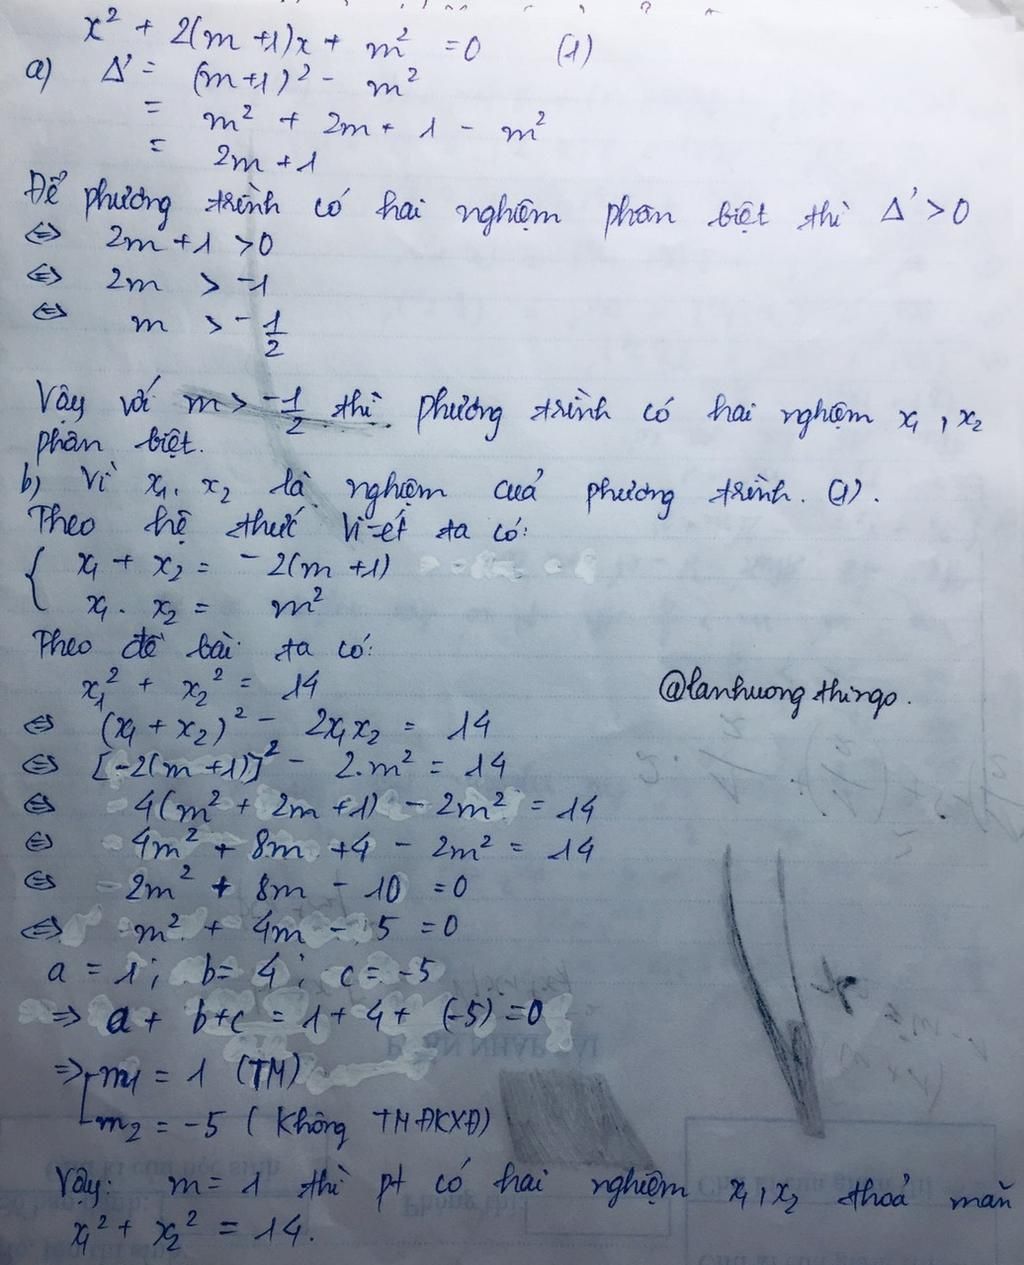 x² + 2(m+1)x + m² = 0 (1)
a) Δ' = (m+1)² - m²
= m² + 2m + 1 - m²
= 2m + 1
Để phương trình có hai nghiệm phân biệt thì Δ' > 0
⇔ 2m + 1 > 0
⇔ 2m > -1
⇔ m > -1/2
Vậy với m > -1/2 thì phương trình có hai nghiệm x₁, x₂
phân biệt.
b) Vì x₁, x₂ là nghiệm cuả phương trình. (1).
Theo hệ thức Vi-ét ta có:
{ x₁ + x₂ = -2(m+1)
x₁ . x₂ = m²
Theo đề bài ta có:
x₁² + x₂² = 14
@lanhuongthingo.
⇔ (x₁ + x₂)² - 2x₁x₂ = 14
⇔ [-2(m+1)]² - 2.m² = 14
⇔ 4(m² + 2m + 1) - 2m² = 14
⇔ 4m² + 8m + 4 - 2m² = 14
⇔ 2m² + 8m - 10 = 0
⇔ m² + 4m - 5 = 0
a = 1; b = 4; c = -5
⇒ a + b + c = 1 + 4 + (-5) = 0
⇒ [ m₁ = 1 (TM)
m₂ = -5 (Không TMĐKXĐ)
Vậy: m = 1 thì pt có hai nghiệm x₁, x₂ thoả mãn
x₁² + x₂² = 14.